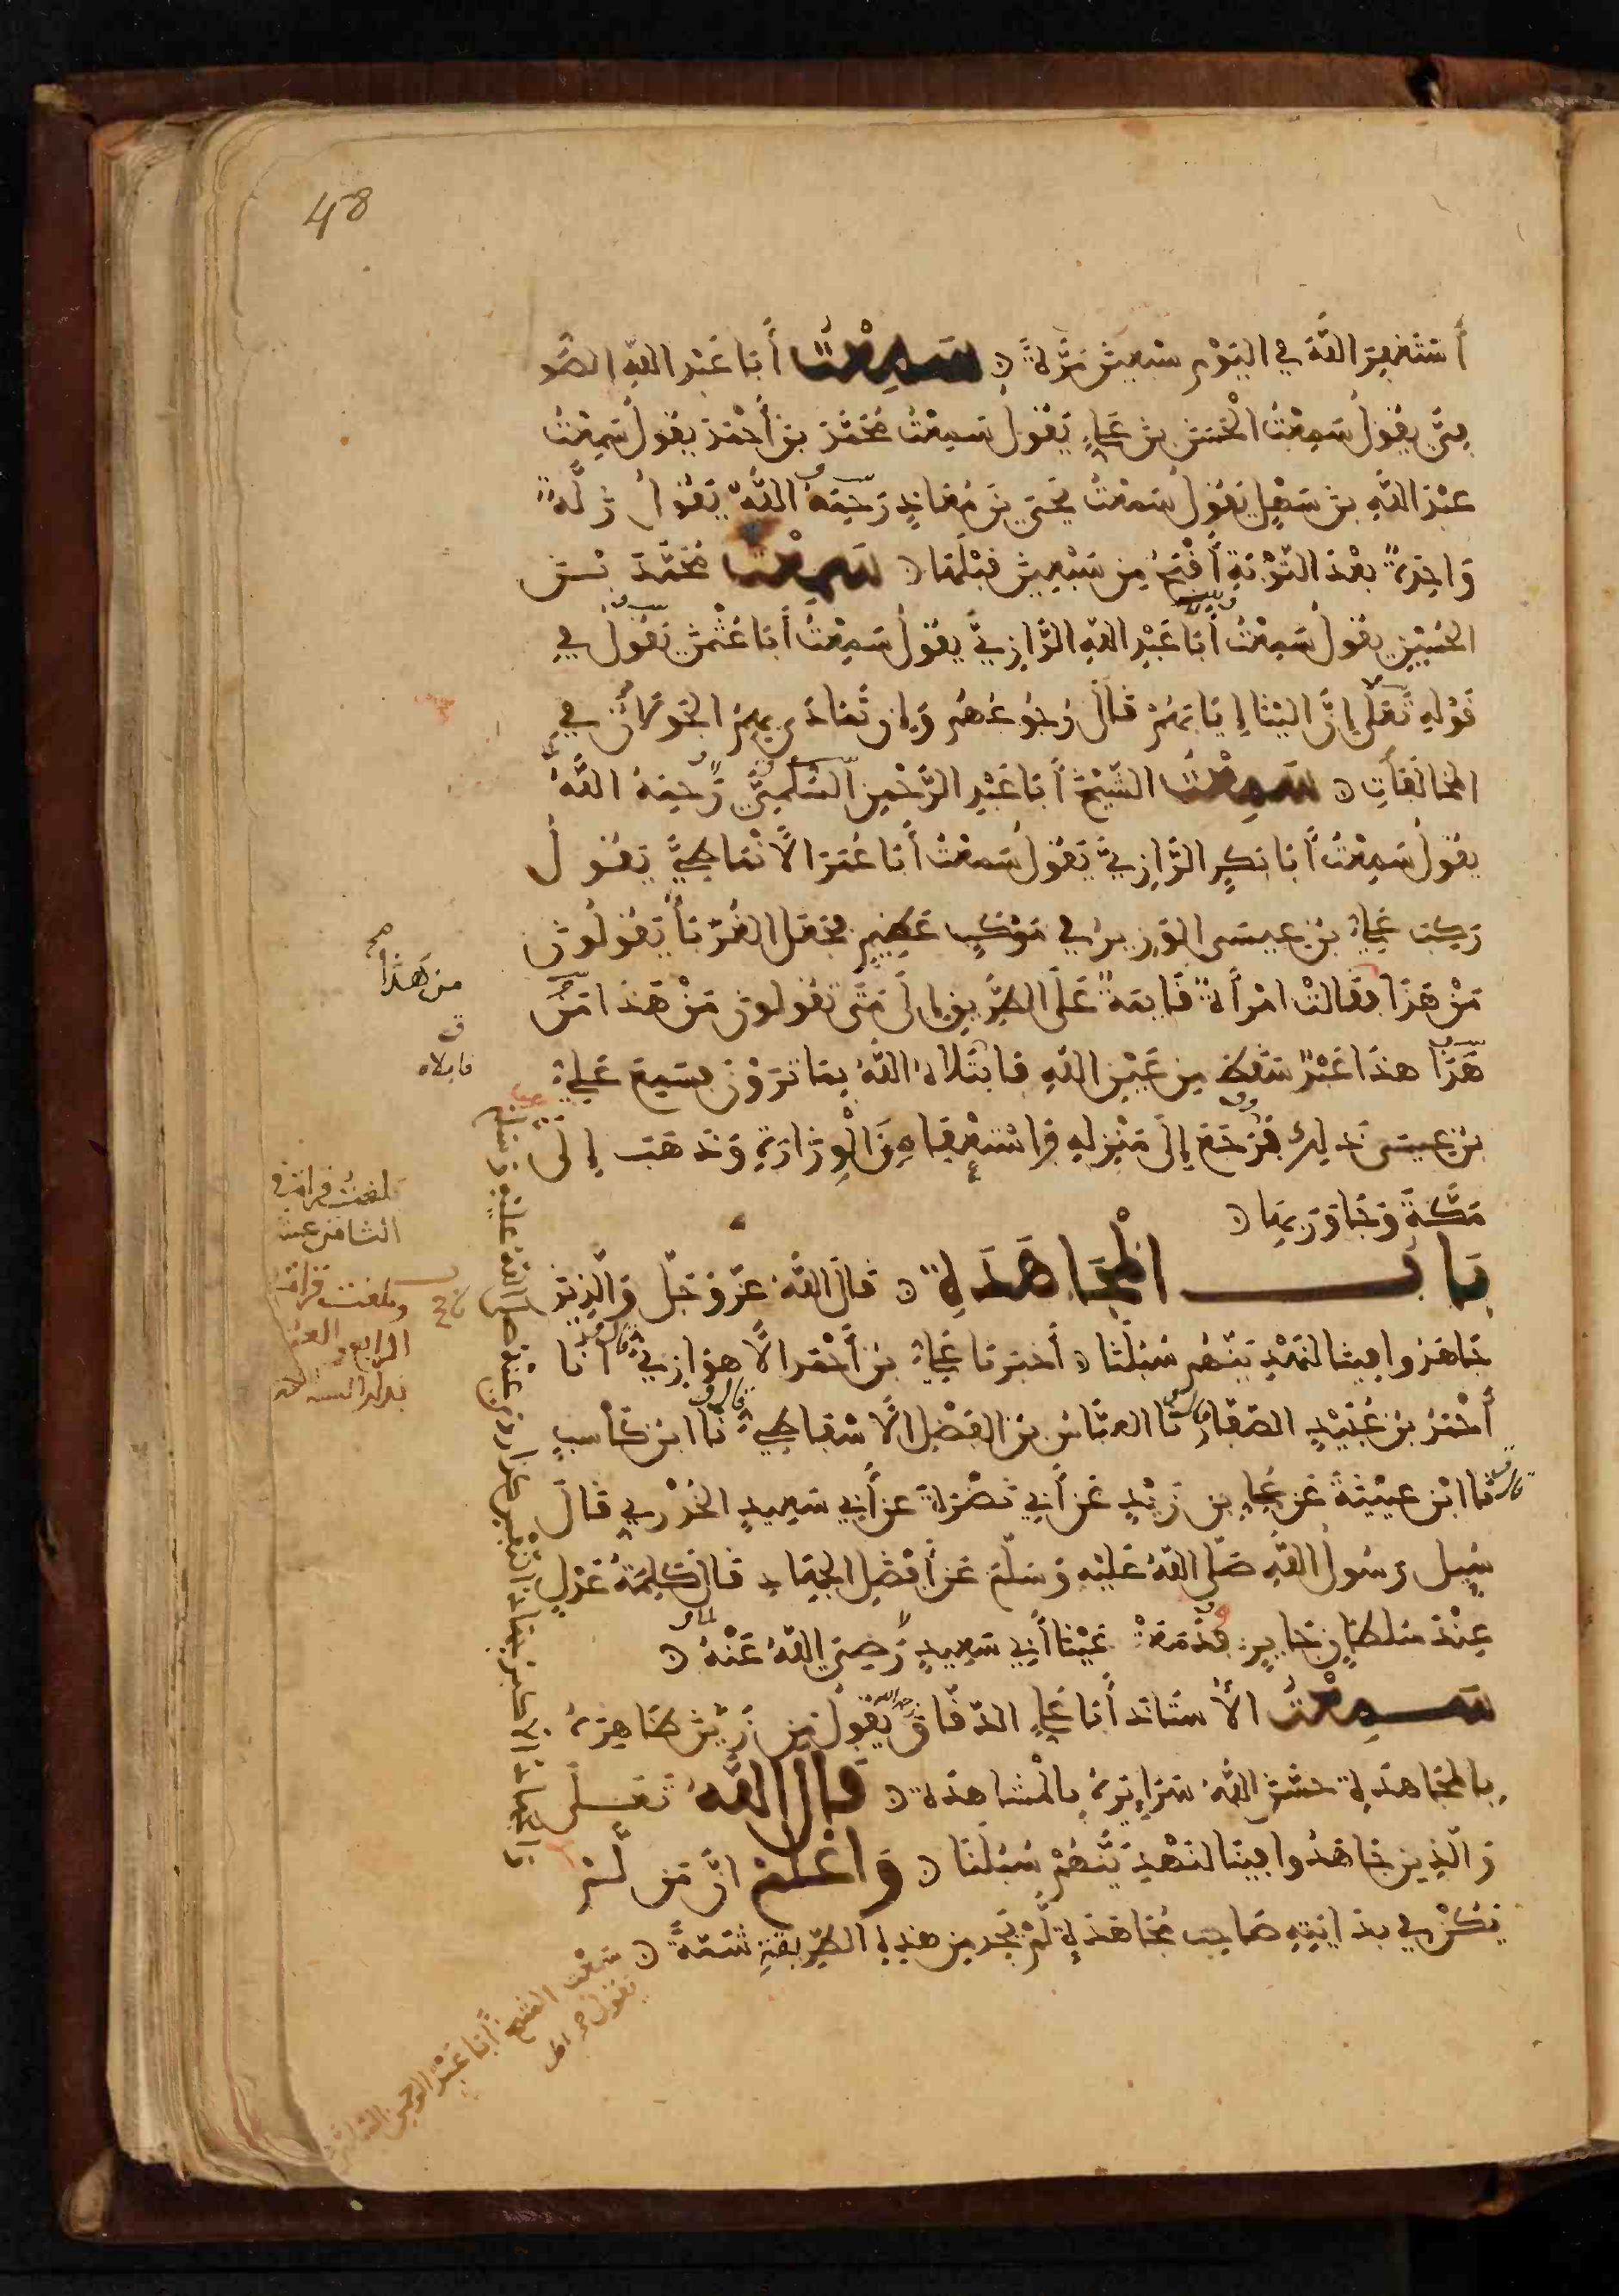 48
أَسْتَغْفِرَ اللَّهَ في اليَوْمِ سَبْعِينَ مَرَّةً سَمِعْتُ أَبَا عَبْدِ اللهِ الصُّو
فِيَّ يقُولُ سَمِعْتُ الحُسَيْنَ بنَ عَلِيٍّ يَقُولُ سَمِعْتُ مُحَمَّدَ بنَ أَحْمَدَ يقُولُ سَمِعْتُ
عَبْدَ اللهِ بنَ سَهْلٍ يَقُولُ سَمِعْتُ يَحْيَى بنَ مُعَاذٍ رَحِمَهُ اللَّهُ يَقُولُ زَلَّةٌ
وَاحِدَةٌ بَعْدَ التَّوْبَةِ أَقْبَحُ مِن سَبْعِينَ قَبْلَهَا سَمِعْتُ مُحَمَّدَ بْنَ
الحُسَيْنِ يقُولُ سَمِعْتُ أَبَا عَبْدِ اللهِ الرَّازِيَّ يقُولُ سَمِعْتُ أَبَا عُثْمَنَ يَقُولُ فِي
قَوْلِهِ تَعَلَى إِنَّ إِلَيْنَا إِيَابَهُمْ قَالَ رُجُوعُهُم وَإِن تَمَادَى بِهِمُ الجَوَلَانُ فِي
المُخَالَفَاتِ سَمِعْتُ الشَّيْخَ أَبَا عَبْدِ الرَّحْمنِ السُّلَمِيَّ رَحِمَهُ اللَّهُ
يقُولُ سَمِعْتُ أَبَا بَكْرٍ الرَّازِيَّ يَقُولُ سَمِعْتُ أَبَا عُمَرَ الأَنْمَاطِيَّ يَقُولُ
رَكِبَ عَلِيُّ بنُ عِيسَى الوَزِيرُ في مَوْكِبٍ عَظِيمٍ فَجَعَلَ الغُرَبَاءُ يَقُولُونَ
مَنْ هَذَا فَقَالَتْ امْرَأَةٌ قَايِمَةٌ عَلَى الطَّرِيقِ إِلَى مَتَى تقُولُونَ مَنْ هَذَا مَنْ
هَذَا هذَا عَبْدٌ سَقَطَ مِن عَيْنِ اللهِ فَابْتَلَاهُ اللَّهُ بِمَا تَرَوْنَ فسَمِعَ عَلِيُّ
بنُ عِيسَى ذَلِكَ فَرَجَعَ إِلَى مَنْزِلِهِ وَاسْتَعْفَى مِنَ الْوِزَارَةِ وَذَهَبَ إِلَى
مَكَّةَ وَجَاوَرَ بِهَا
بَابُ الْمُجَاهَدَةِ قَالَ اللهُ عَزَّ وَجَلَّ وَالَّذِينَ
جَاهَدُوا فِينَا لَنَهْدِيَنَّهُم سُبُلَنَا أَخبَرنَا عَلِيُّ بنُ أَحْمَدَ الأَهوَازِيُّ أَنَا
أَحْمَدُ بنُ عُبَيْدٍ الصَّفَّارُ نَا العَبَّاسُ بنُ الفَضْلِ الأَسْقَاطِيُّ نَا ابنُ كَاسِبٍ
نَا ابْنُ عيَيْنَةَ عَن عَلِيِّ بنِ زَيْدٍ عَن أَبِي نَضْرَةَ عَن أَبِي سَعِيدٍ الخُدْرِيِّ قَالَ
سُيِلَ رَسُولُ اللَّهِ صَلَّى اللهُ عَلَيْهِ وَسَلَّمَ عَن أَفْضَلِ الجِهَادِ قَالَ كَلِمَةُ عَدْلٍ
عِنْدَ سُلطَانٍ جَايِرٍ فدَمَعَتْ عَيْنَا أَبِي سَعِيدٍ رَضِيَ اللهُ عَنْهُ
سَمِعْتُ الأُسْتَاذَ أَبَا عَلِيٍّ الدَّقَّاقَ يَقُولُ مَن زَيَّنَ ظَاهِرَهُ
بِالمُجَاهَدَةِ حَسَّنَ اللَّهُ سَرَايِرَهُ بِالمُشَاهَدَةِ قَالَ اللَّهُ تَعَلَى
وَالَّذِينَ جَاهَدُوا فِينَا لَنَهْدِيَنَّهُمْ سُبُلَنَا وَاعْلَمْ أَنَّ مَن لَّمْ
يَكُنْ فِي بدَايَتِهِ صَاحِبَ مُجَاهَدَةٍ لَمْ يَجِد مِن هَذِهِ الطَّرِيقَةِ شَمَّةً
سَمِعْتُ الشيخ أَبَا عَبْدِ الرحمن
يَقُولُ
من هَذَا
صح
فابلاه
بلغت قراءة في
الثامن عشر
وبلغت قراءة